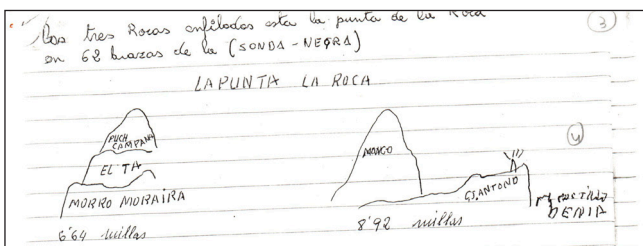 Las tres Rocas enfiladas esta la punta de la Roca
en 62 brazas de la (SONDA-NEGRA)
3
LAPUNTA LA ROCA
PUCH
CAMPANA
EL TA
MORRO MORAIRA
6'64 millas
MONGO
4
C.S. ANTONO
CASTILLO
DENIA
8'92 millas